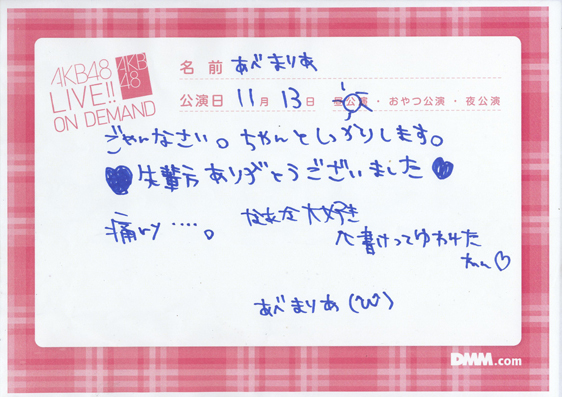 AKB48
LIVE!!
ON DEMAND
AKB
48
名 前 あべまりあ
公演日 11月 13日 昼公演・おやつ公演・夜公演
ごめんなさい。ちゃんとしっかりします。
先輩方ありがとうございました
痛い....。 なぁな大好き
へ書けってゆわれた
わん♡
あべまりあ
DMM.com